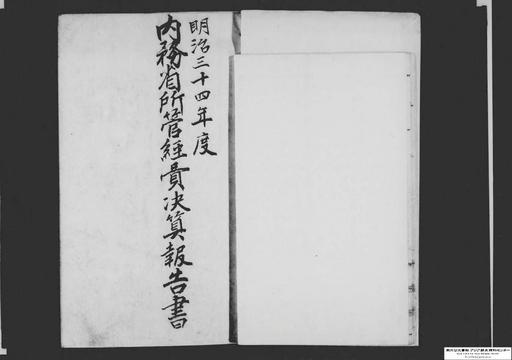 明治三十四年度
内務省所管経費決算報告書